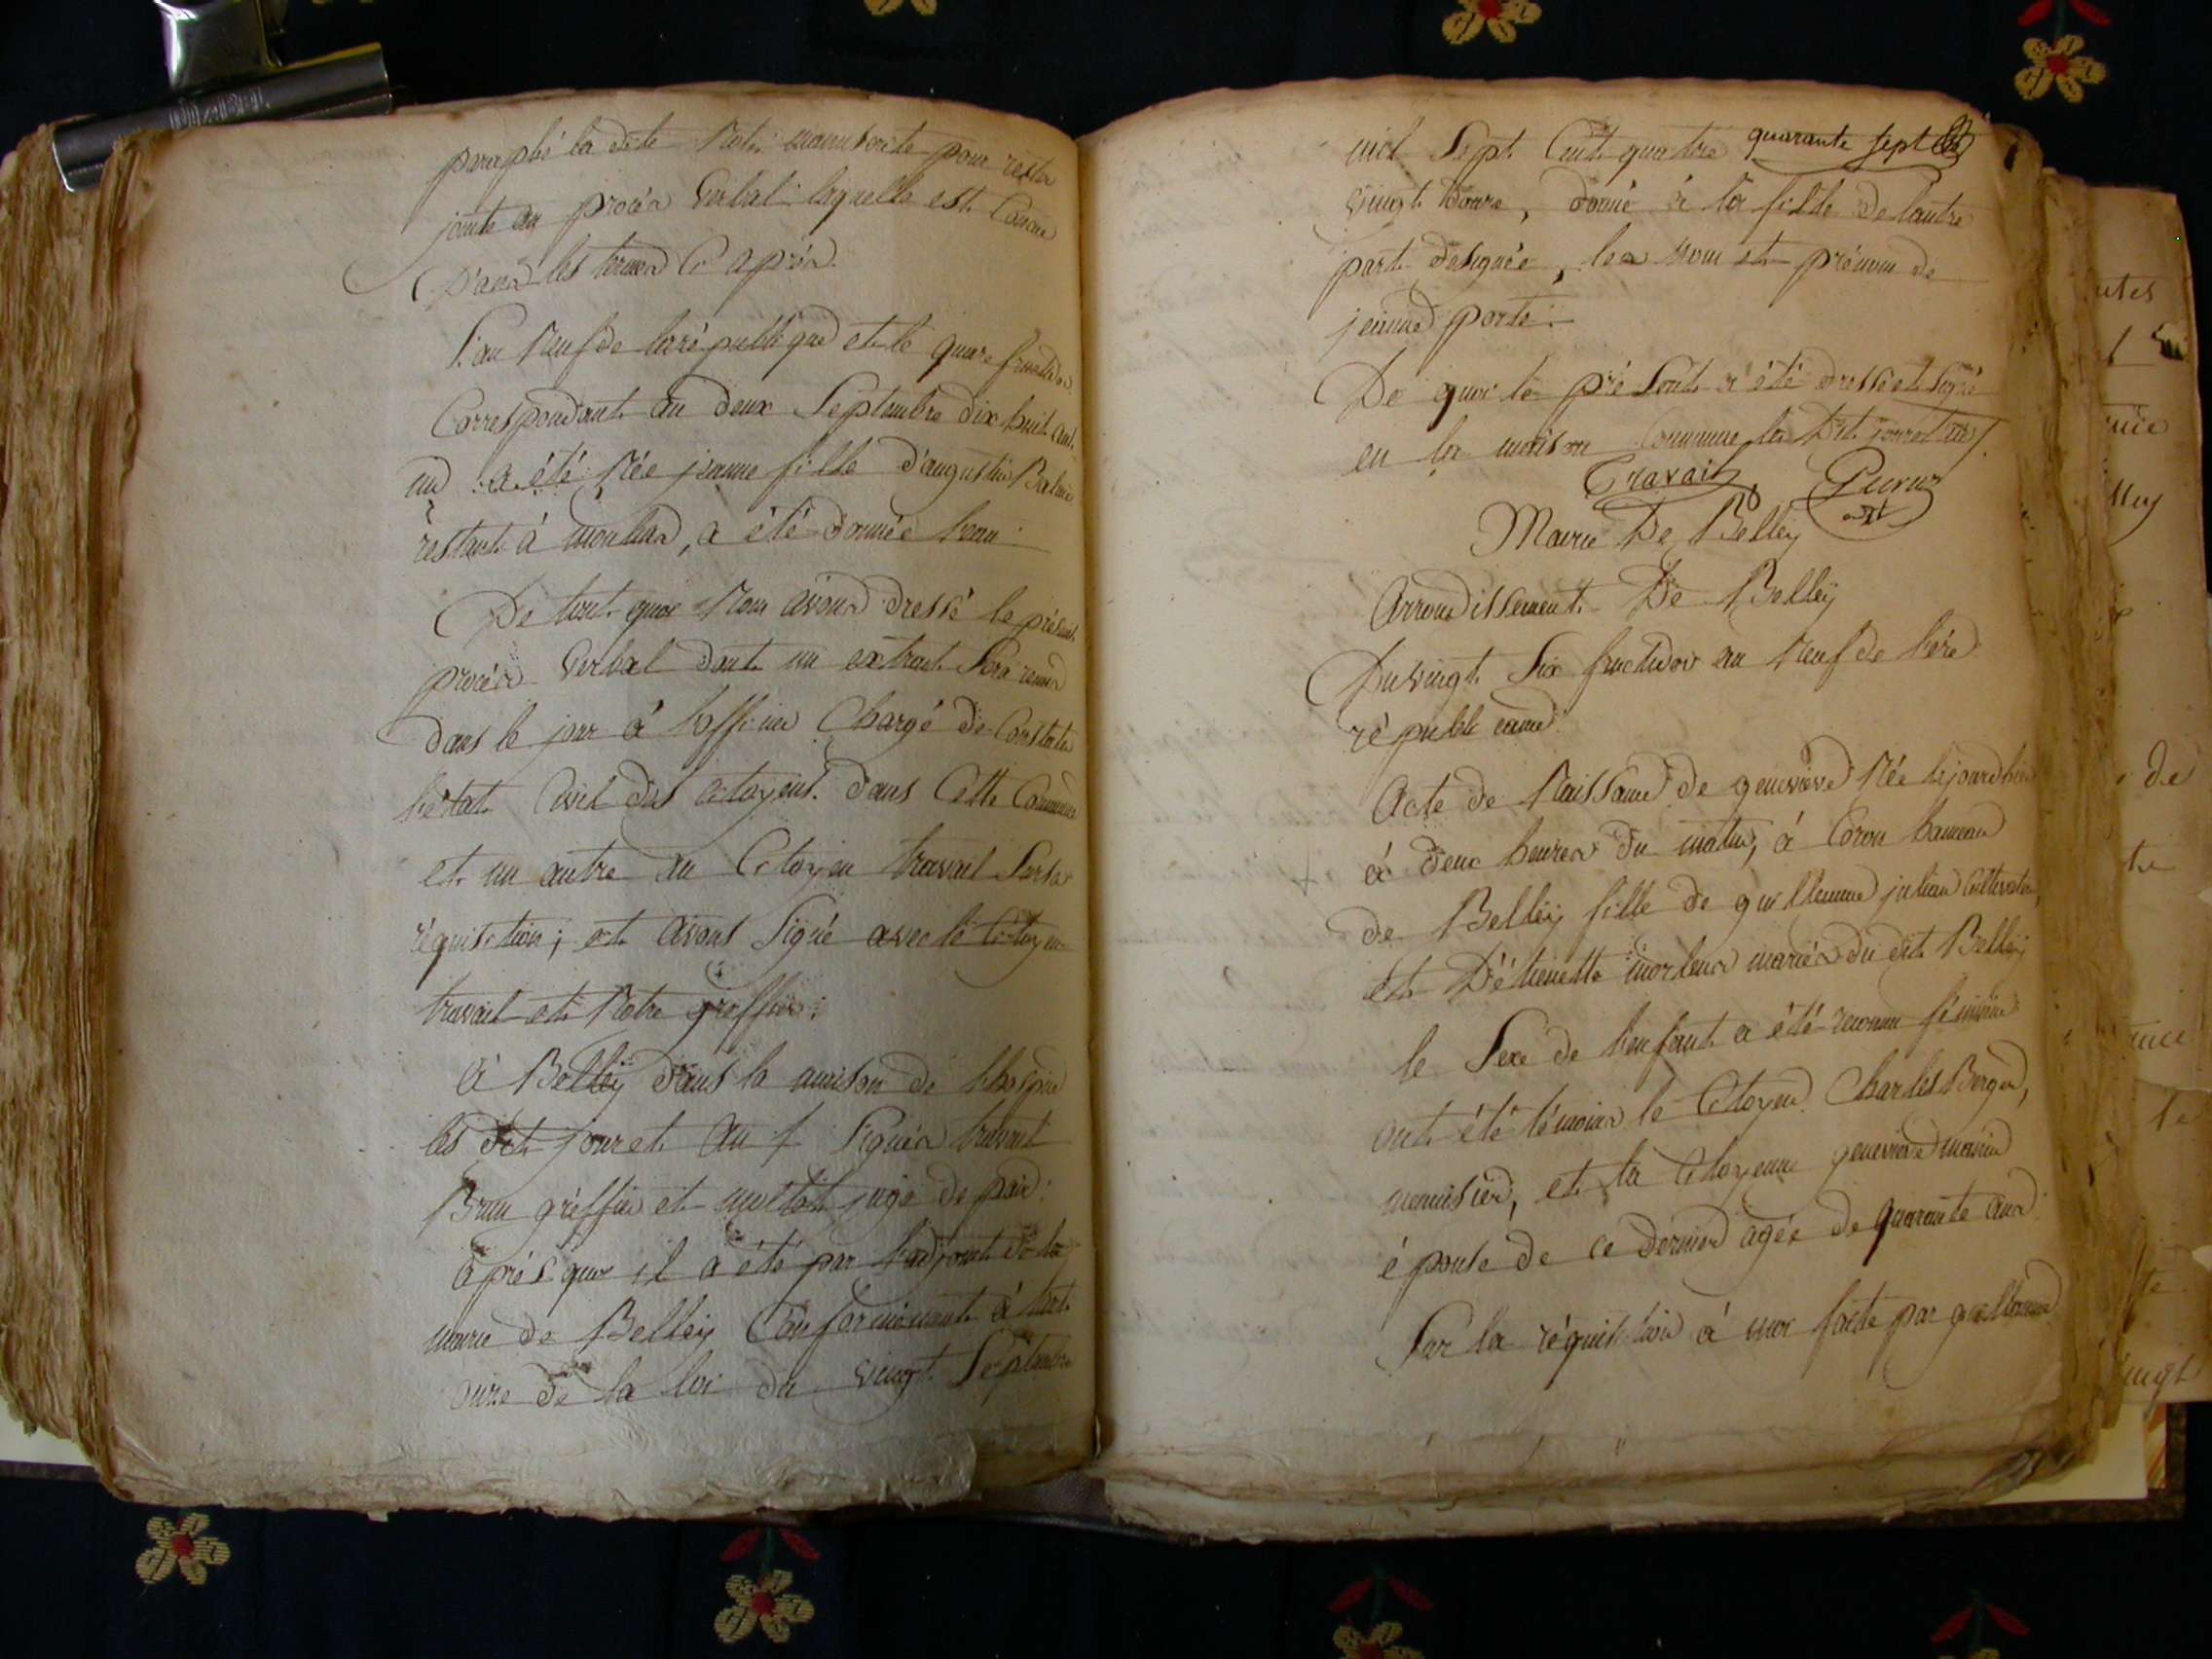 paraphé la dite Note manuscrite pour rester
jointe au procès Verbal laquelle est Concue
Dans les termes Ci après
L'an Neuf de la république et le quinze fructidor
Correspondant au deux Septembre dix huit cent
un a été Née jeanne fille d'augustin
restant à, a été donnée
De tout quoi Nous avons dressé le présent
procès Verbal dont un extrait Sera remis
dans le jour à l'officier Chargé de Constater
l'état Civil des citoyens dans Cette Commune
et un autre au Citoyen travail Sur sa
réquisition; et avons Signé avec le Citoyen
travail et Notre greffier:
à Belley dans la maison de l'hospice
les dit jour et an f. Signés travail
Brun gréffier et juge de paix:
après quoi il a été par l'adjoint de la
mairie de Belley Conformément à l'art.
onze de la loi du vingt Septembre
quarante sept
mil Sept Cent quatre
vingt douze, donné à la fille de l'autre
part designée, les nom et prénom de
jeanne porte:
De quoi le présent a été dressé et Signé
en la maison Commune les Dit jour et an f.
Travail
Mairie De Belley
Arrondissement De Belley
Du vingt Six fructidor an Neuf de l'ére
républicaine
Acte de Naissance de geneviève Née ajourdhui
à deux heures du matin, à Coron hameau
de Belley fille de guillaume julian Cultivateur,
et D'étiennette mariés du dit Belley
le Sexe de l'enfant a été reconnu féminin
ont été témoins le Citoyen Charles Berger,
menuisier, et la Citoyenne geneviève
épouse de ce dérnier agée de quarante ans
Sur la réquisition à moi faite par guillaume